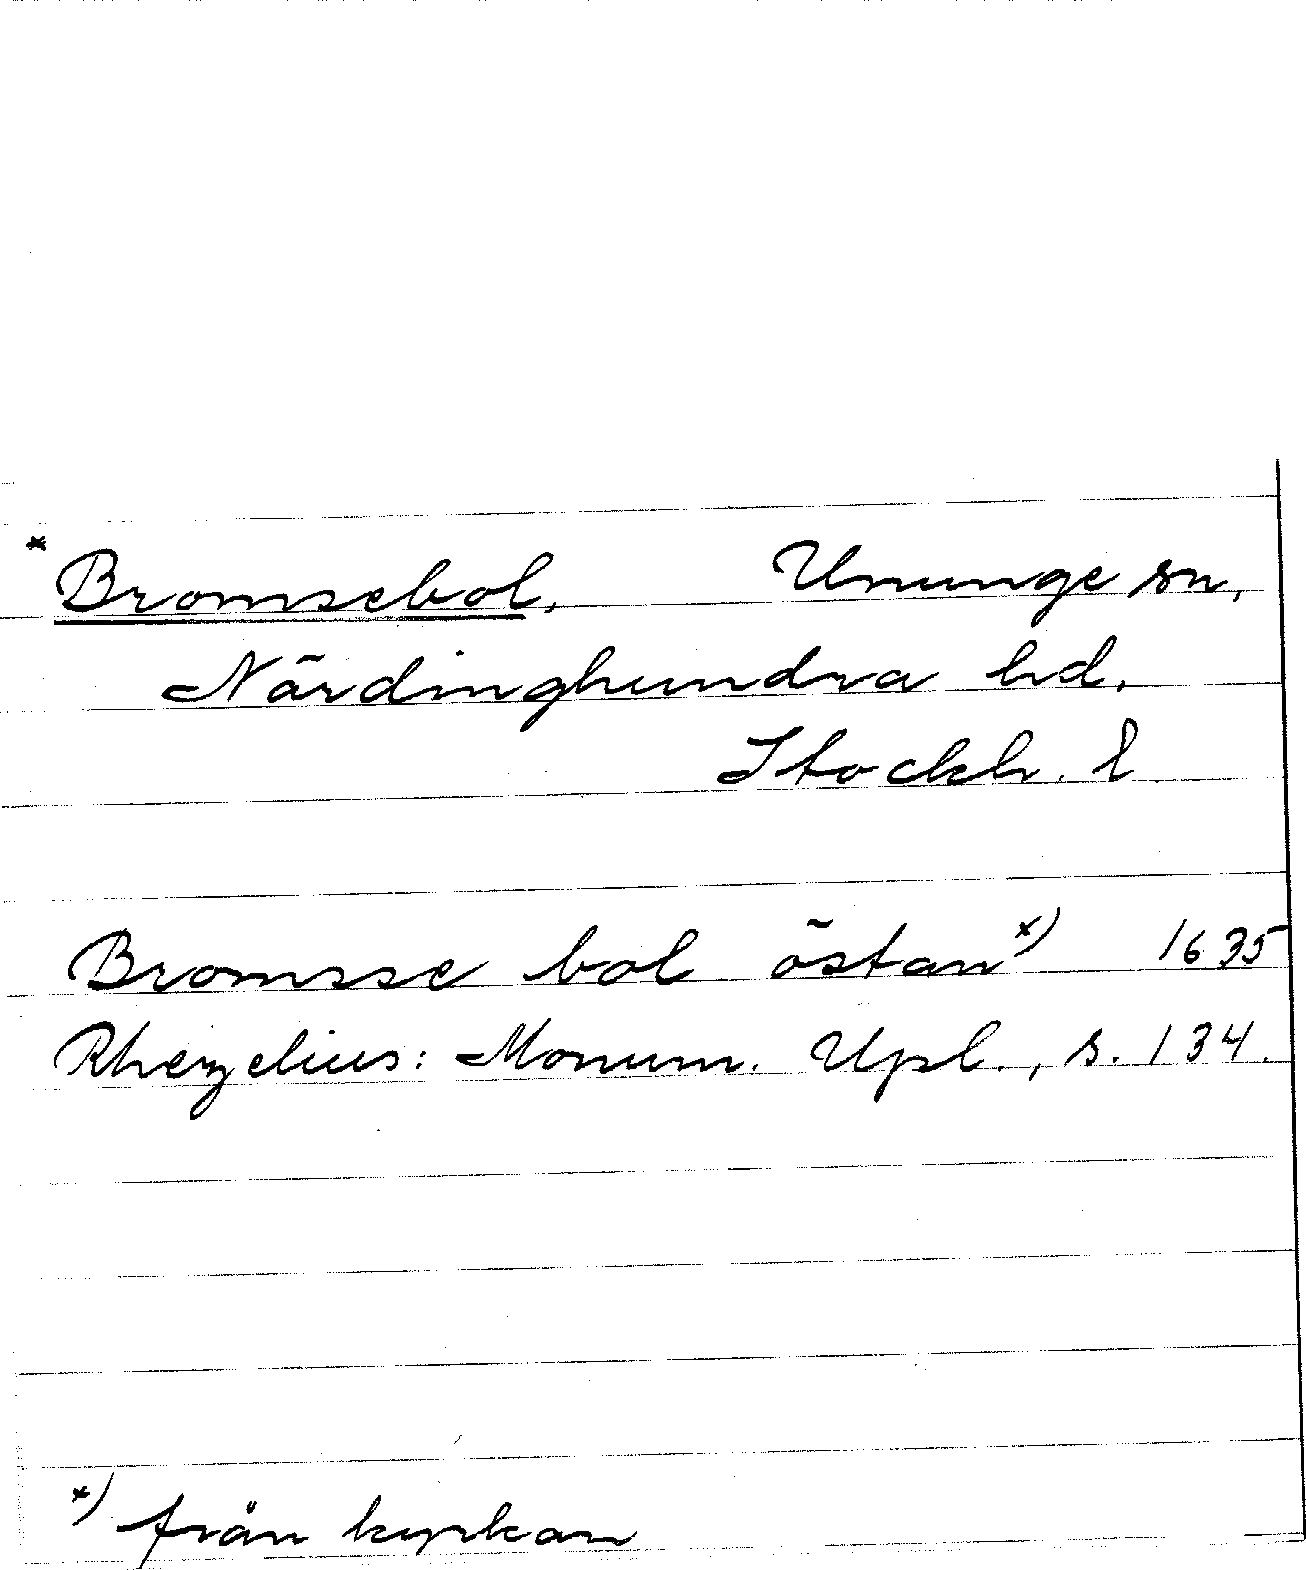 *Bromsebol, Ununge sn,
Närdinghundra hd,
Stockh. l
Bromsse bol östan x) 1635
Rhezelius: Monum. Upl., s. 134.
x) från kyrkan